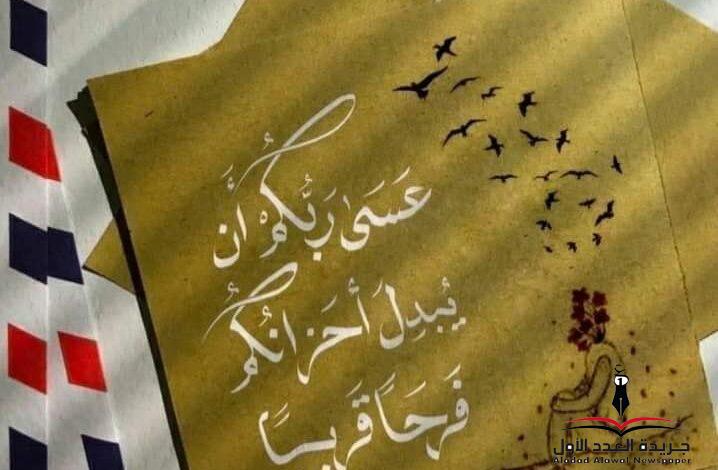 عَسَىٰ رَبُّكُمْ أَنْ
يُبدِلَ أحَزانكُمُ
فَرَحًا قَريبًا
جريدة العدد الأول
Aladad Alawal Newspaper